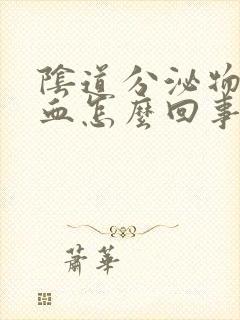 陰道分泌物
血怎麼回事
蕭華